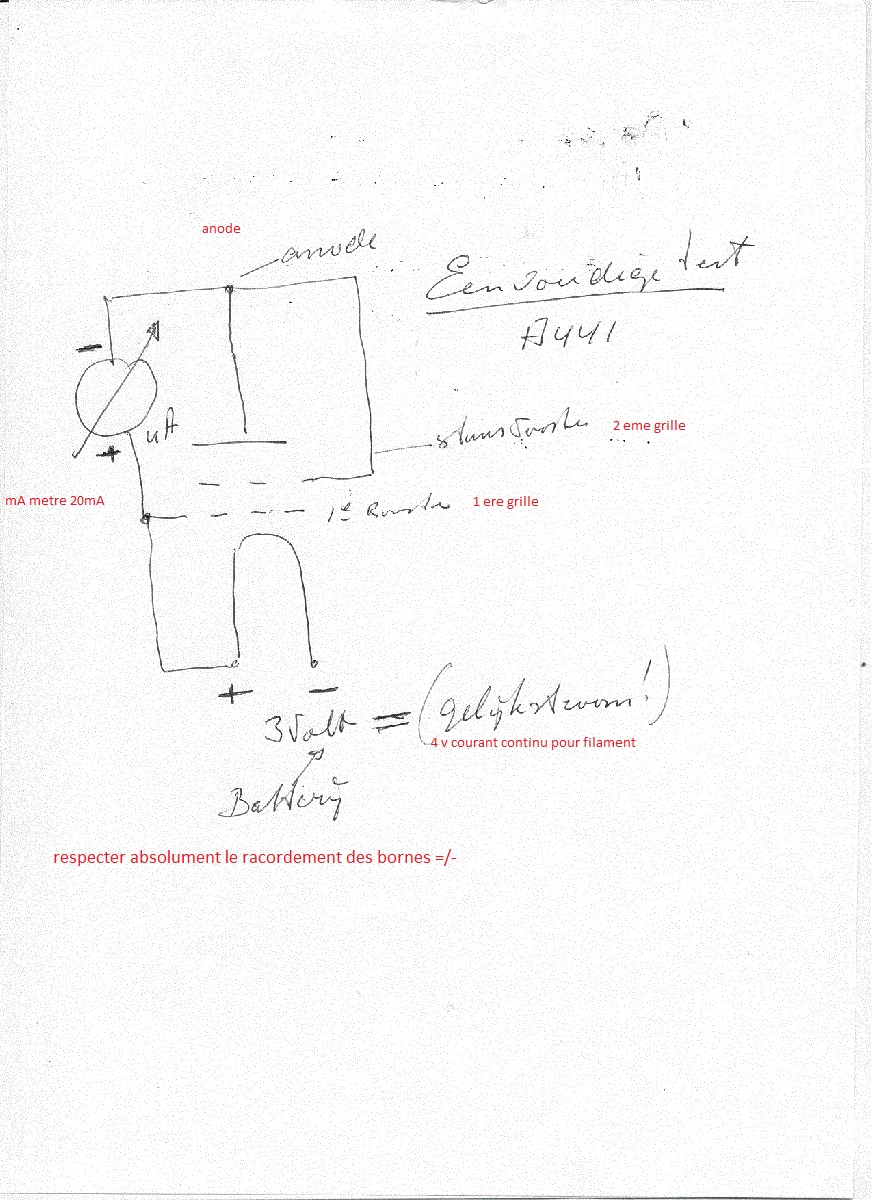 anode
anode
Eenvoudige test
A441
-
uA
+
stuurrooster
2 eme grille
mA metre 20mA
1e Rooster
1 ere grille
+ -
3 Volt = (gelijkstroom!)
4 v courant continu pour filament
Batterij
respecter absolument le racordement des bornes =/-